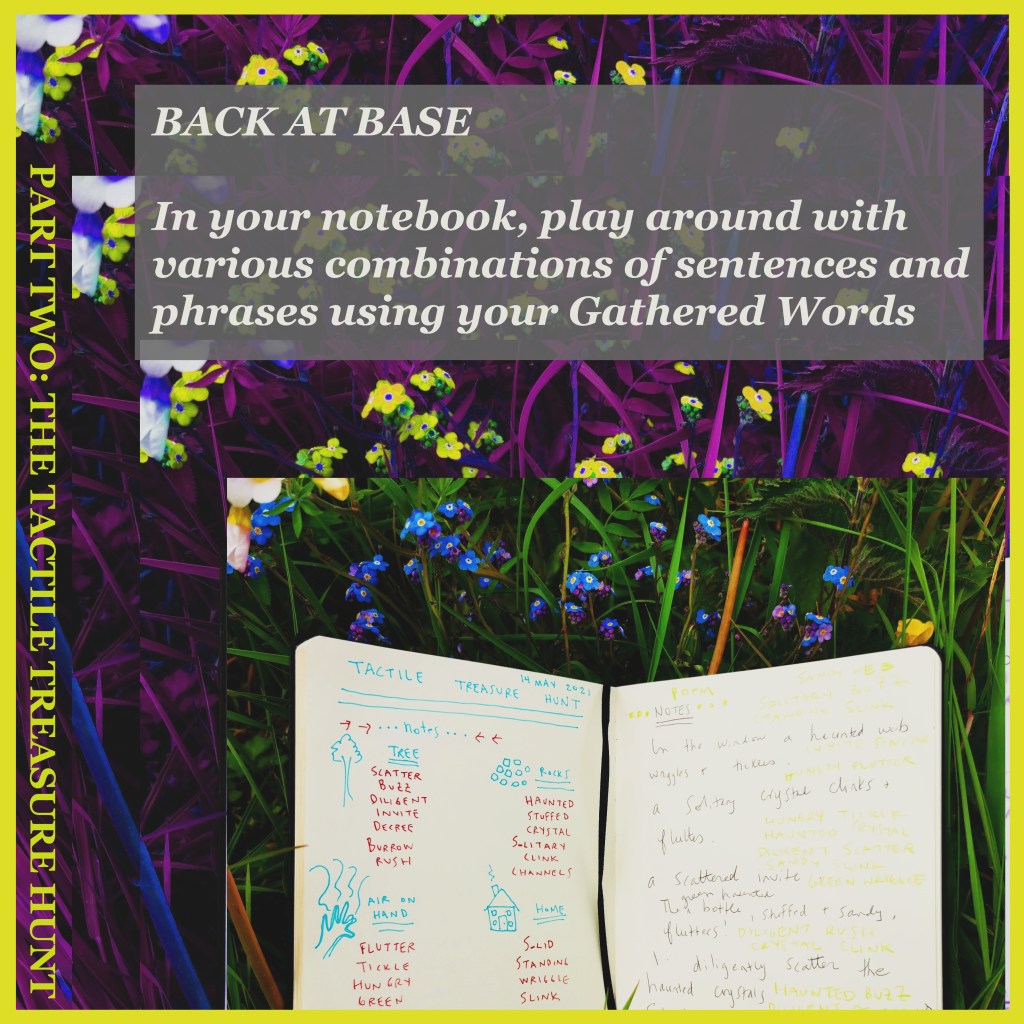 PART TWO: THE TACTILE TREASURE HUNT
BACK AT BASE
In your notebook, play around with
various combinations of sentences and
phrases using your Gathered Words
TACTILE TREASURE HUNT
14 MAY 2021
→ → ... notes ... ← ←
TREE
SCATTER
BUZZ
DILIGENT
INVITE
DECREE
BURROW
RUSH
ROCKS
HAUNTED
STUFFED
CRYSTAL
SOLITARY
CLINK
CHANNELS
AIR ON
HAND
FLUTTER
TICKLE
HUNGRY
GREEN
HOME
SOLID
STANDING
WRIGGLE
SLINK
POEM
NOTES
In the window a haunted web
wiggles + tickles.
a solitary crystal clinks +
flutters.
a scattered invite
green haunted
The bottle, stuffed + sandy,
flutters!
I diligently scatter the
haunted crystals
HUNGRY FLUTTER
HUNGRY TICKLE
HAUNTED CRYSTAL
DILIGENT SCATTER
SANDY LINK
GREEN WRIGGLE
DILIGENT RUSH
CRYSTAL CLINK
HAUNTED BUZZ